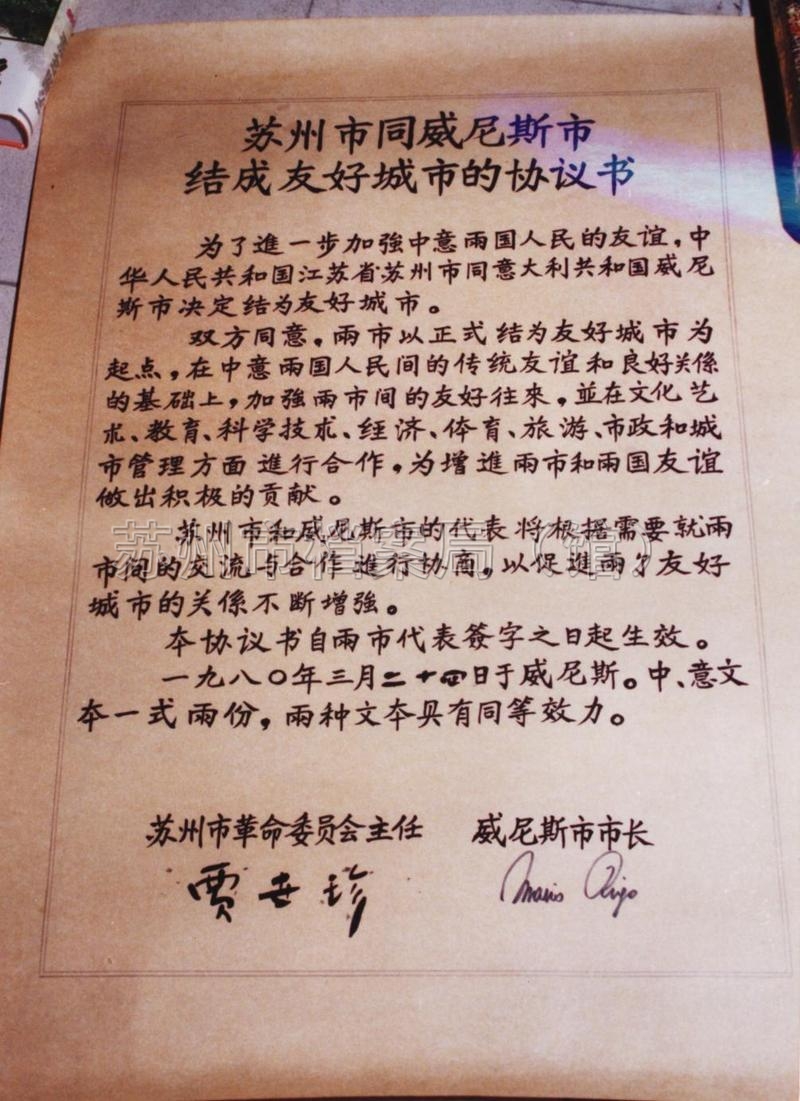 苏州市同威尼斯市
结成友好城市的协议书
为了進一步加強中意兩国人民的友谊,中
华人民共和国江苏省苏州市同意大利共和国威尼
斯市决定结为友好城市。
双方同意,兩市以正式结为友好城市为
起点,在中意兩国人民间的传统友谊和良好关係
的基础上,加強兩市间的友好往來,並在文化艺
术、教育、科学技术、经济、体育、旅游、市政和城
市管理方面進行合作,为增進兩市和兩国友谊
做出积极的贡献。
苏州市和威尼斯市的代表将根据需要就兩
市间的交流与合作進行协商,以促進兩个友好
城市的关係不断增強。
本协议书自兩市代表簽字之日起生效。
一九八〇年三月二十四日于威尼斯。中、意文
本一式兩份,兩种文本具有同等效力。
苏州市革命委员会主任 威尼斯市市长
贾世珍 Mario Rigo
苏州市档案局(馆)